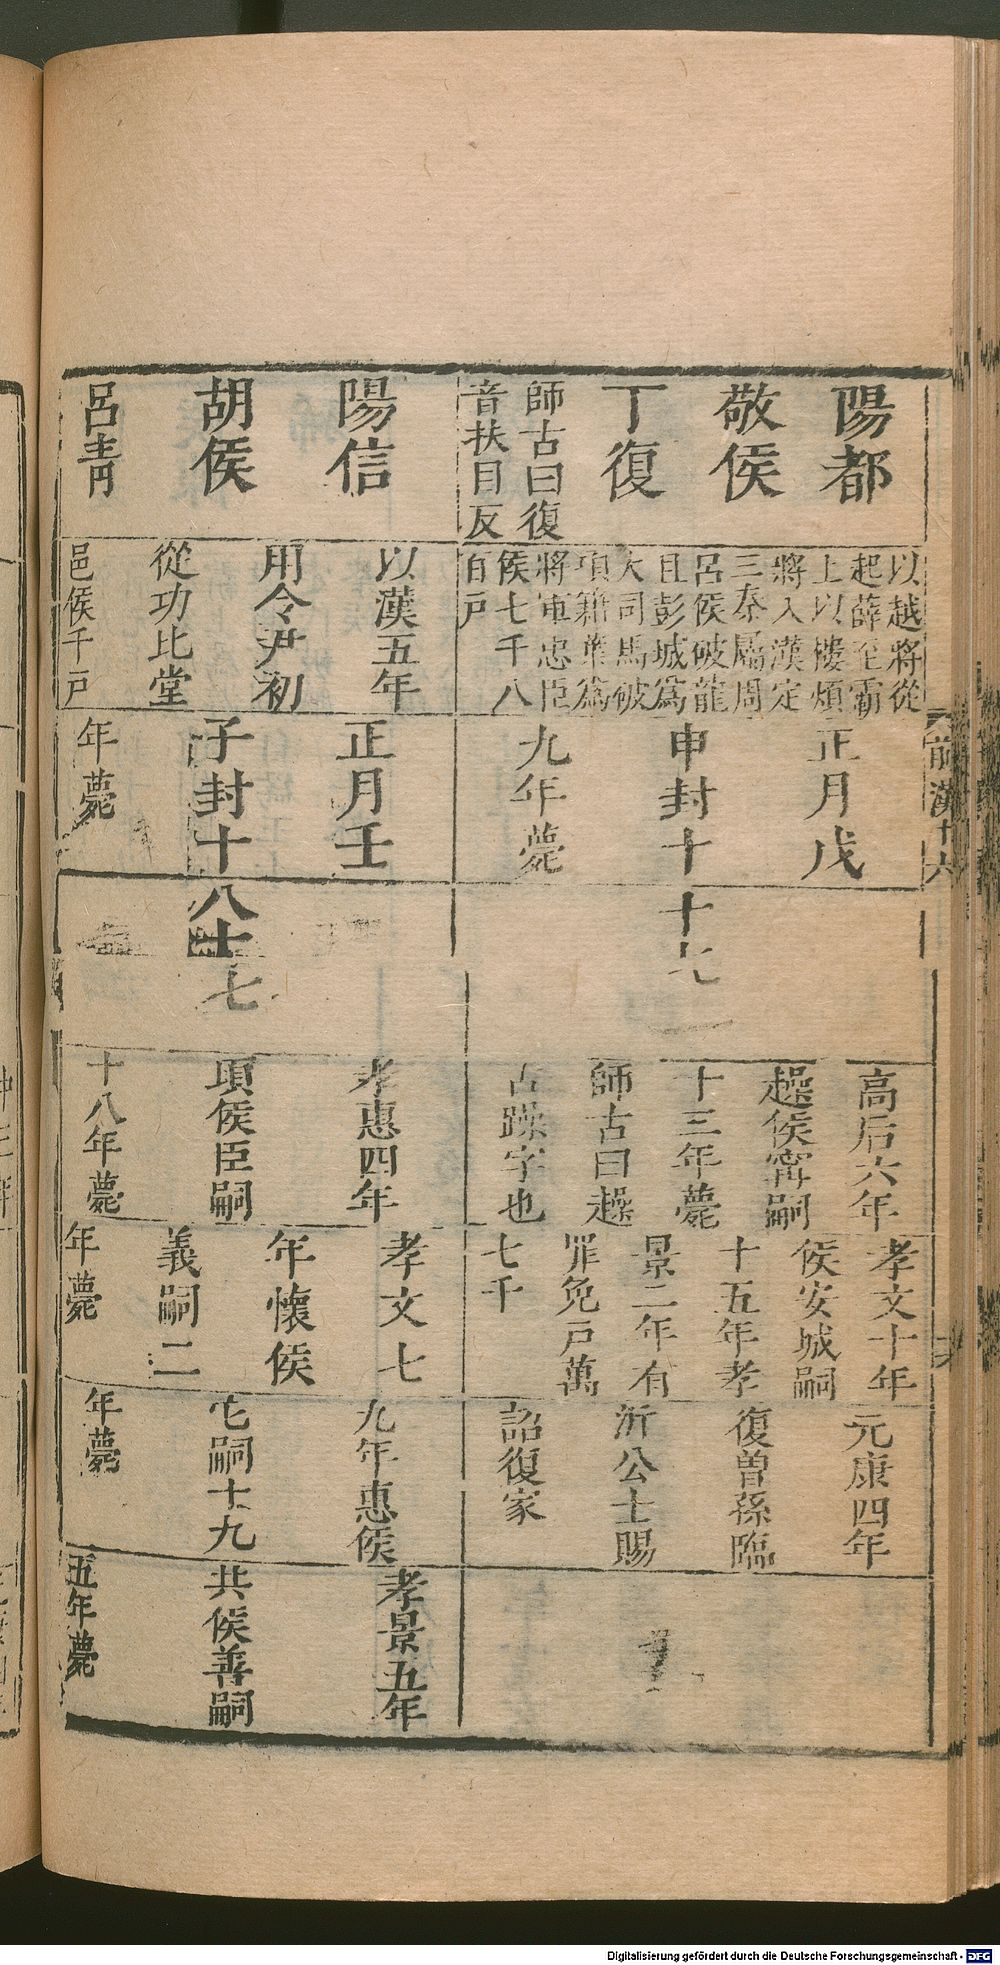 前漢十六
陽都
敬侯
丁復
師古曰復
音扶目反
以越將從
起薛至霸
上以樓煩
將入漢定
三秦屬周
呂侯破龍
且彭城爲
大司馬破
項籍葉爲
將軍忠臣
侯七千八
百戸
正月戊
申封十
九年薨
十七
高后六年
趮侯甯嗣
十三年薨
師古曰趮
古躁字也
孝文十年
侯安城嗣
十五年孝
景二年有
罪免戸萬
七千
元康四年
復曽孫臨
沂公士賜
詔復家
陽信
胡侯
呂青
以漢五年
用令尹初
從功比堂
邑侯千戸
正月壬
子封十
年薨
八十七
孝惠四年
項侯臣嗣
十八年薨
孝文七
年懷侯
義嗣二
年薨
九年惠侯
它嗣十九
年薨
孝景五年
共侯善嗣
五年薨
Digitalisierung gefördert durch die Deutsche Forschungsgemeinschaft - DFG